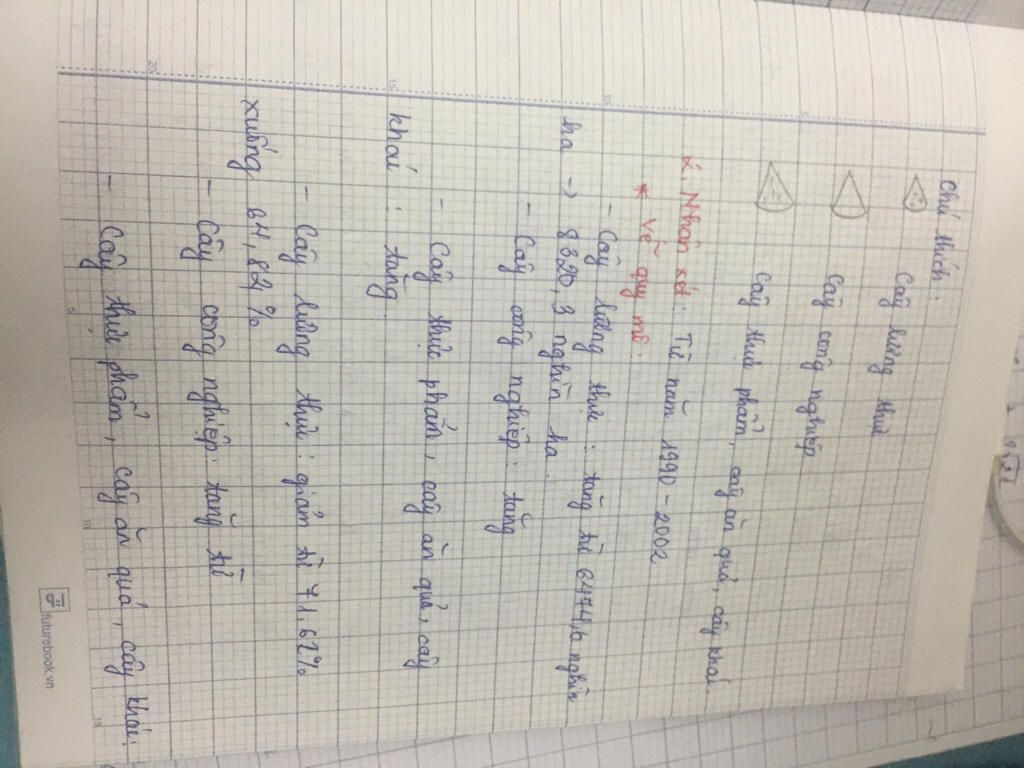 Chú thích:
Cây lương thực
Cây công nghiệp
Cây thực phẩm, cây ăn quả, cây khai
2. Nhận xét: Từ năm 1990 - 2002
* Về quy mô:
- Cây lương thực: tăng từ 6474,6 nghìn
ha → 8320,3 nghìn ha.
- Cây công nghiệp: tăng
- Cây thực phẩm, cây ăn quả, cây
khai: tăng.
- Cây lương thực: giảm từ 71,62%
xuống 64,84%
- Cây công nghiệp: tăng từ
- Cây thực phẩm, cây ăn quả, cây khác:
5
10
15
20
5
10
15
futurebook.vn